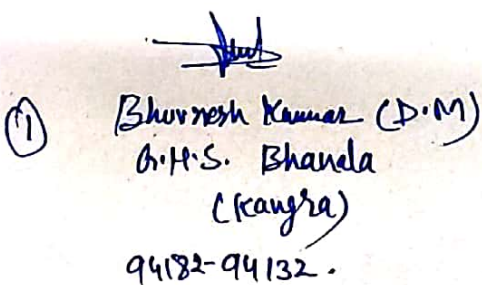 ① Bhuvnesh Kumar (D.M)
G.H.S. Bhanala
(Kangra)
94182-94132.